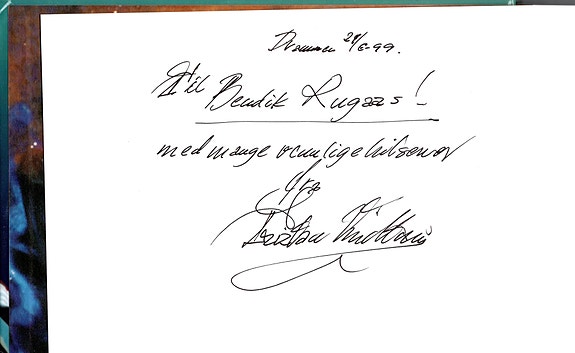 Drammen 28/6-99.
Til
Bendik Rugaas!
med mange vennlige hilsener
fra